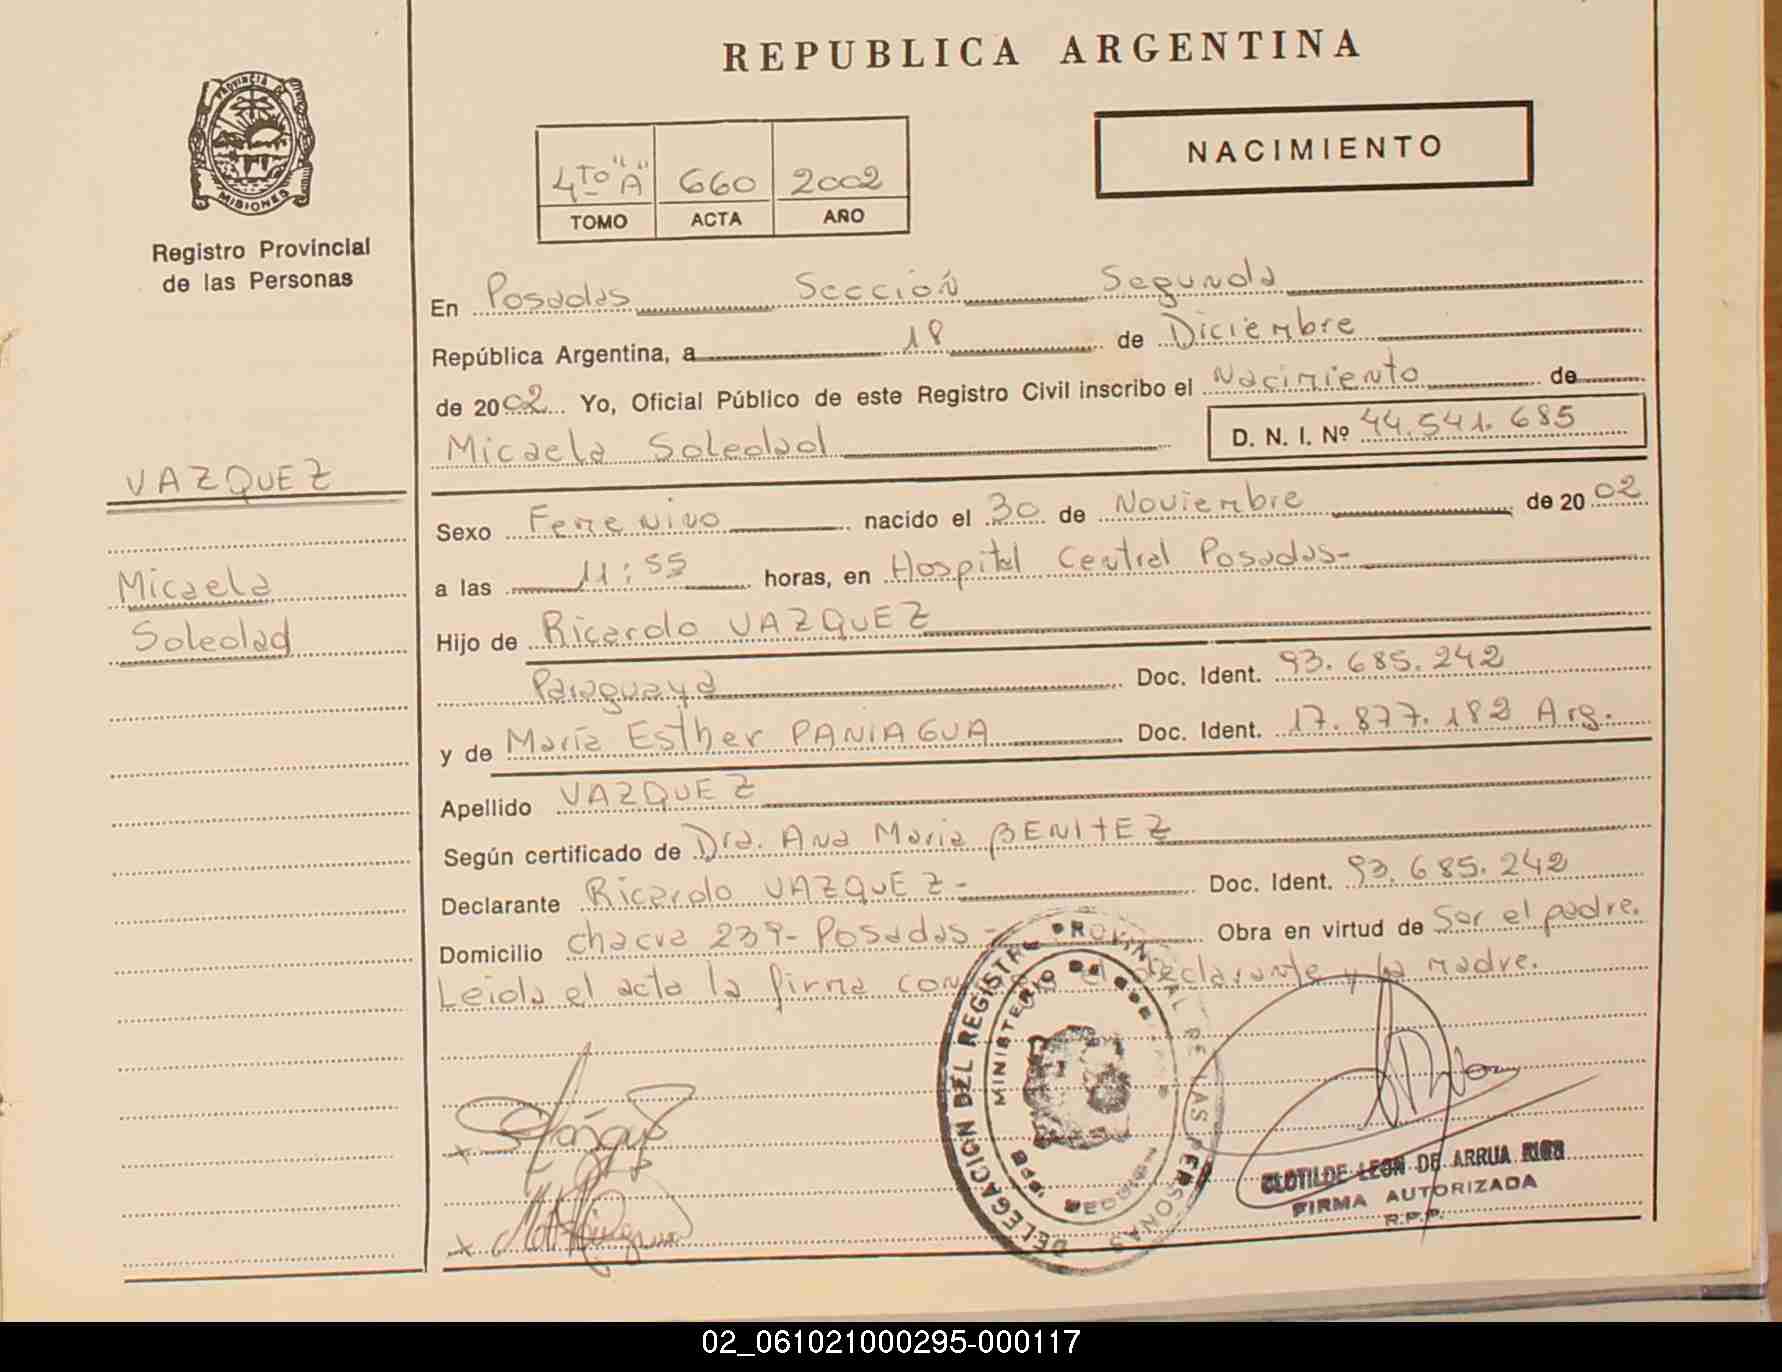 REPUBLICA ARGENTINA
PROVINCIA D
MISIONES
Registro Provincial
de las Personas
NACIMIENTO
4TO "A" 660 2002
TOMO ACTA AÑO
En Posadas Sección Segunda
República Argentina, a 18 de Diciembre
de 2002 Yo, Oficial Público de este Registro Civil inscribo el Nacimiento de
Micaela Soledad D. N. I. Nº 44.541.685
VAZQUEZ
Micaela
Soledad
Sexo Femenino nacido el 30 de Noviembre de 2002
a las 11:55 horas, en Hospital Central Posadas-
Hijo de Ricardo VAZQUEZ
Paraguaya Doc. Ident. 93.685.242
y de María Esther PANIAGUA Doc. Ident. 17.877.182 Arg.
Apellido VAZQUEZ
Según certificado de Dra. Ana Maria BENITEZ
Declarante Ricardo VAZQUEZ- Doc. Ident. 93.685.242
Domicilio chacra 239- Posadas- Obra en virtud de Ser el padre.
Leida el acta la firma el declarante y la madre.
DELEGACION DEL REGISTRO PROVINCIAL DE LAS PERSONAS
MINISTERIO DE
CLOTILDE LEON DE ARRUA RIOS
FIRMA AUTORIZADA
R.P.P.
02_061021000295-000117